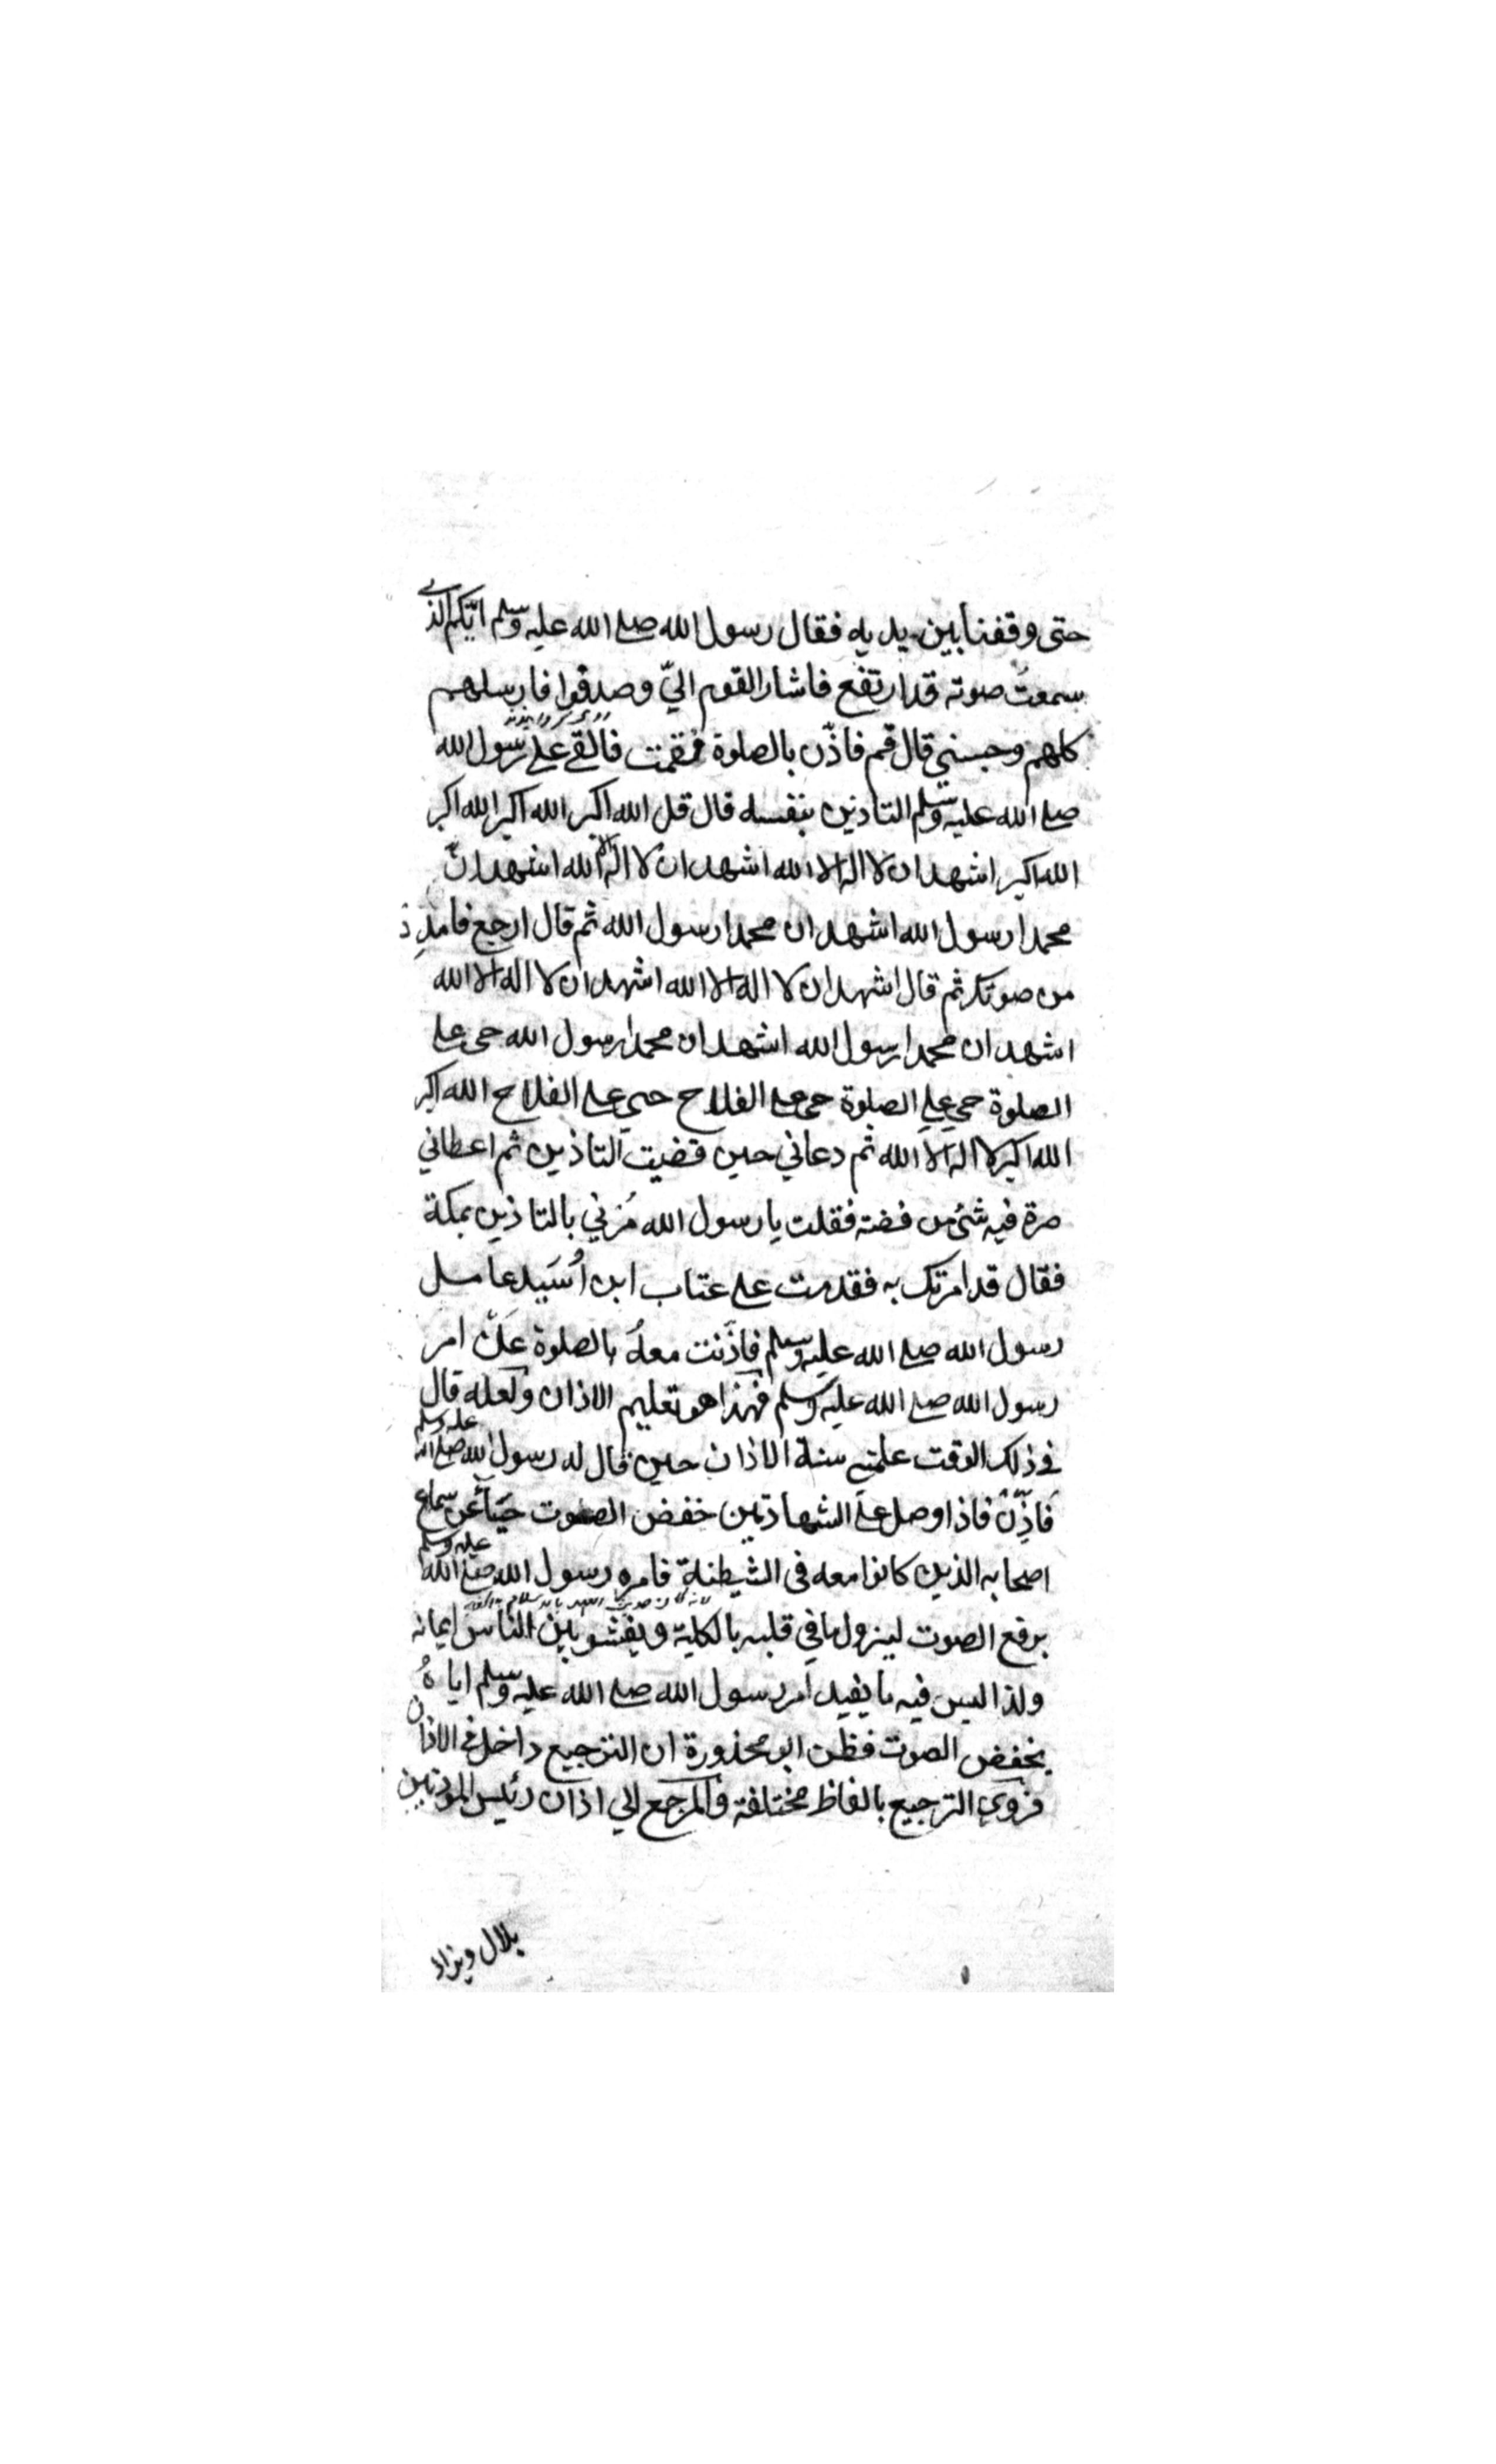 حتى وقفنا بين يديه فقال رسول الله صلے الله عليه وسلم ايّكم الذي
سمعت صوته قد ارتفع فاشار القوم اليّ وصدقوا فارسلهم
كلهم وحبسني قال قم فاذّن بالصلوة فقمت فالقے علے رسول الله
صلے الله عليه وسلم التاذين بنفسه قال قل الله اكبر الله اكبر الله اكبر
الله اكبر اشهد ان لا اله الا الله اشهد ان لا اله الا الله اشهد انّ
محمدا رسول الله اشهد ان محمدا رسول الله ثم قال ارجع فامدد
من صوتك ثم قال اشهد ان لا اله الا الله اشهد ان لا اله الا الله
اشهد ان محمدا رسول الله اشهد ان محمدا رسول الله حي علے
الصلوة حي علے الصلوة حي علے الفلاح حي علے الفلاح الله اكبر
الله اكبر لا اله الا الله ثم دعاني حين قضيت التاذين ثم اعطاني
صرة فيه شئ من فضة فقلت يا رسول الله مُرني بالتاذين بمكة
فقال قد امرتك به فقدمت علے عتاب ابن اُسَيد عامل
رسول الله صلے الله عليه وسلم فاذّنت معهُ بالصلوة عَنْ امر
رسول الله صلے الله عليه وسلم فهذا هو تعليم الاذان ولعله قال
في ذلك الوقت علمني سنة الاذان حين قال له رسول الله صلے الله عليه وسلم
فَاذِّنْ فاذا وصل علے الشهادتين خفض الصوت حياً عن سماع
اصحابه الذين كانوا معه فى الشيطنة فامره رسول الله صلے الله عليه وسلم
برفع الصوت ليزول ما في قلبه بالكلية ويفشو بين الناس ايمانه
ولذا ليس فيه ما يفيد امر رسول الله صلے الله عليه وسلم اياهُ
بخفض الصوت فظن ابو محذورة ان الترجيع داخل في الاذان
فروى الترجيع بالفاظ مختلفة والمرجع الي اذان رئيس الموذنين
بلال ويزاد